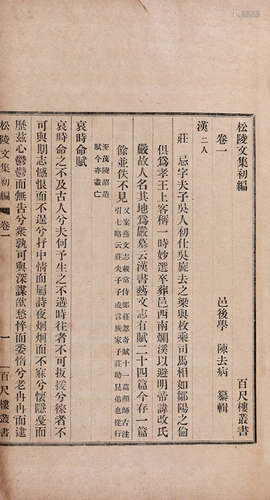 松陵文集初編
百尺樓叢書
卷一
邑後學 陳去病 纂輯
漢二人
莊忌字夫子吳人初仕吳旋去之梁與枚乘司馬相如鄒陽等
俱為孝王上客稱一時妙選卒葬邑西南烟溪以避明帝諱改氏
嚴故人名其地為嚴墓云漢書藝文志有賦二十四篇今存一篇
餘並佚不見
哀時命賦
哀時命之不及古人兮夫何予生之不遘時往者不可扳援兮徠者不
可與期志憾恨而不逞兮抒中情而屬詩夜炯炯而不寐兮懷隱憂而
歷茲心鬱鬱而無告兮眾孰可與深謀欿愁悴而委惰兮老冉冉而逮
松陵文集初編 卷一
一
百尺樓叢書